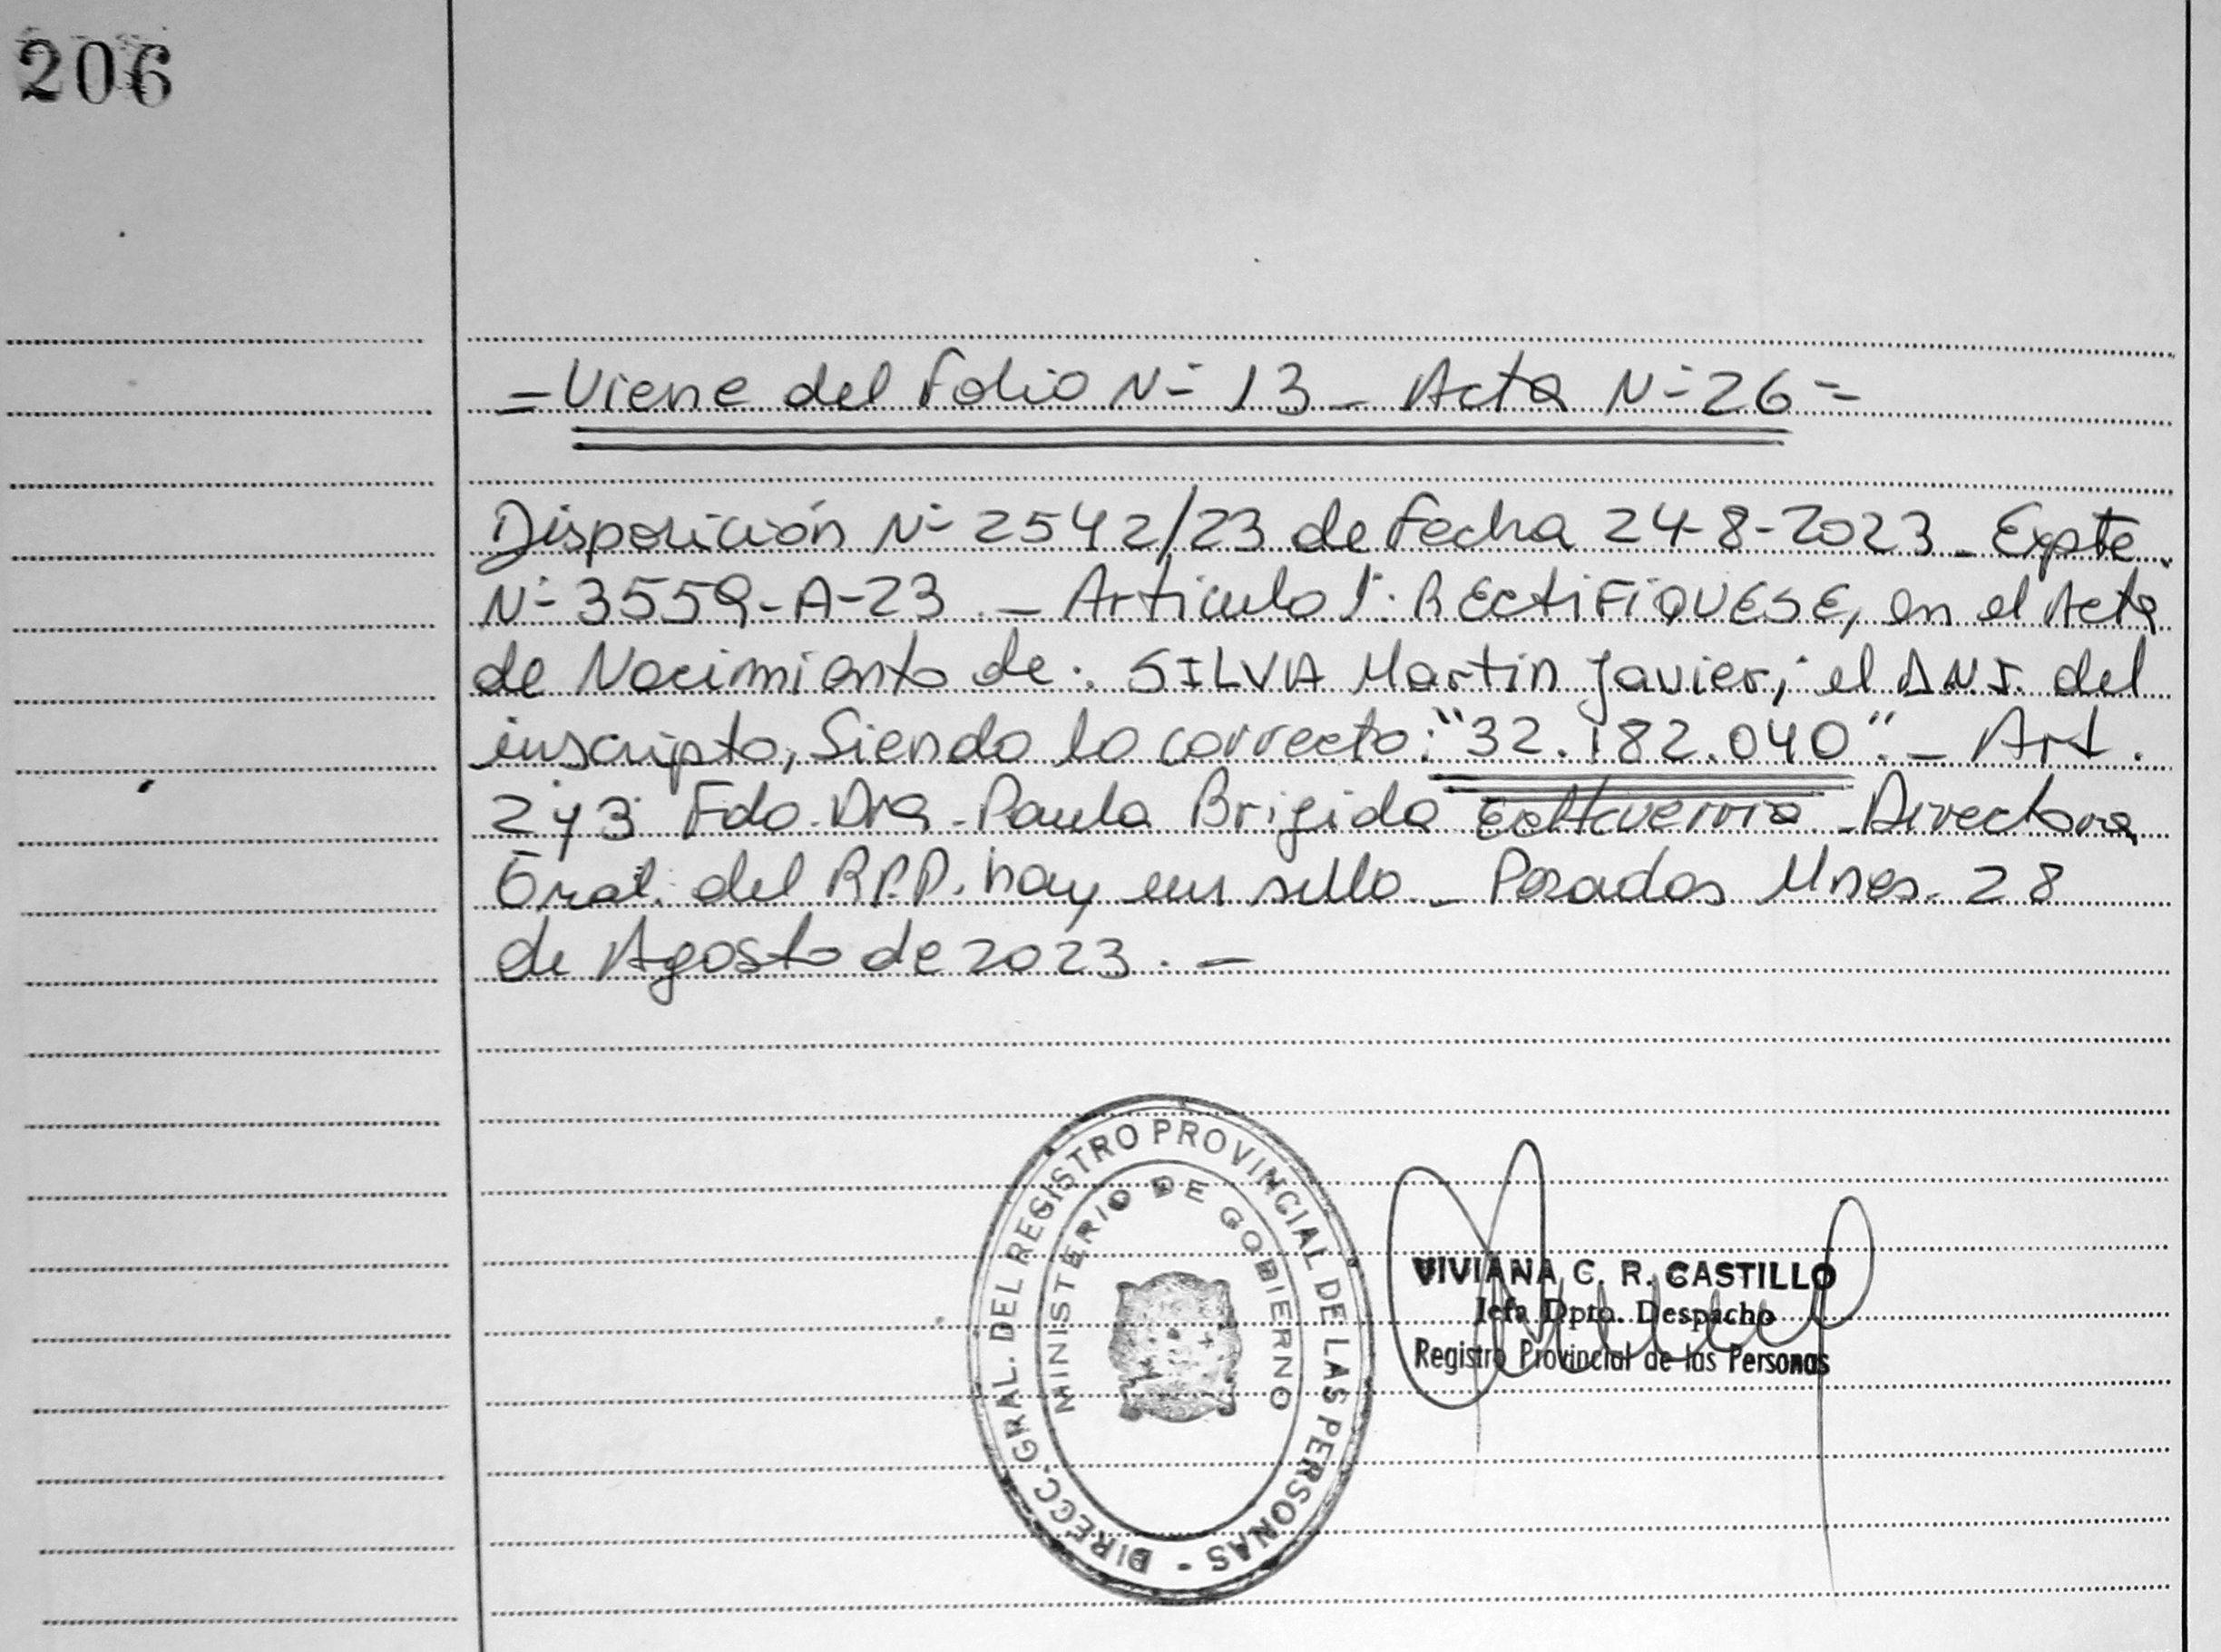 206
= Viene del Folio N- 13 - Acta N- 26 =
Disposición N- 2542/23 de Fecha 24-8-2023 - Expte.
N- 3559-A-23. - Articulo 1°: RECTIFIQUESE, en el Acta
de Nacimiento de: SILVA Martin Javier; el DNI. del
inscripto, Siendo lo correcto: "32.182.040". - Art.
2y3 Fdo. Dra. Paula Brigida Echeverria - Directora
Gral. del R.P.P. hay un sello. - Posadas Mnes. 28
de Agosto de 2023. -
DIRECC. GRAL. DEL REGISTRO PROVINCIAL DE LAS PERSONAS -
MINISTERIO DE GOBIERNO
VIVIANA C. R. CASTILLO
Jefa Dpto. Despacho
Registro Provincial de las Personas